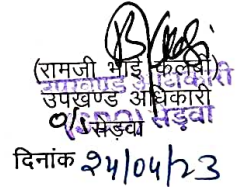 (रामजी भाई कलबी)
उपखण्ड अधिकारी
उपखण्ड अधिकारी
सेड़वा
सेड़वा
दिनांक 24/04/23